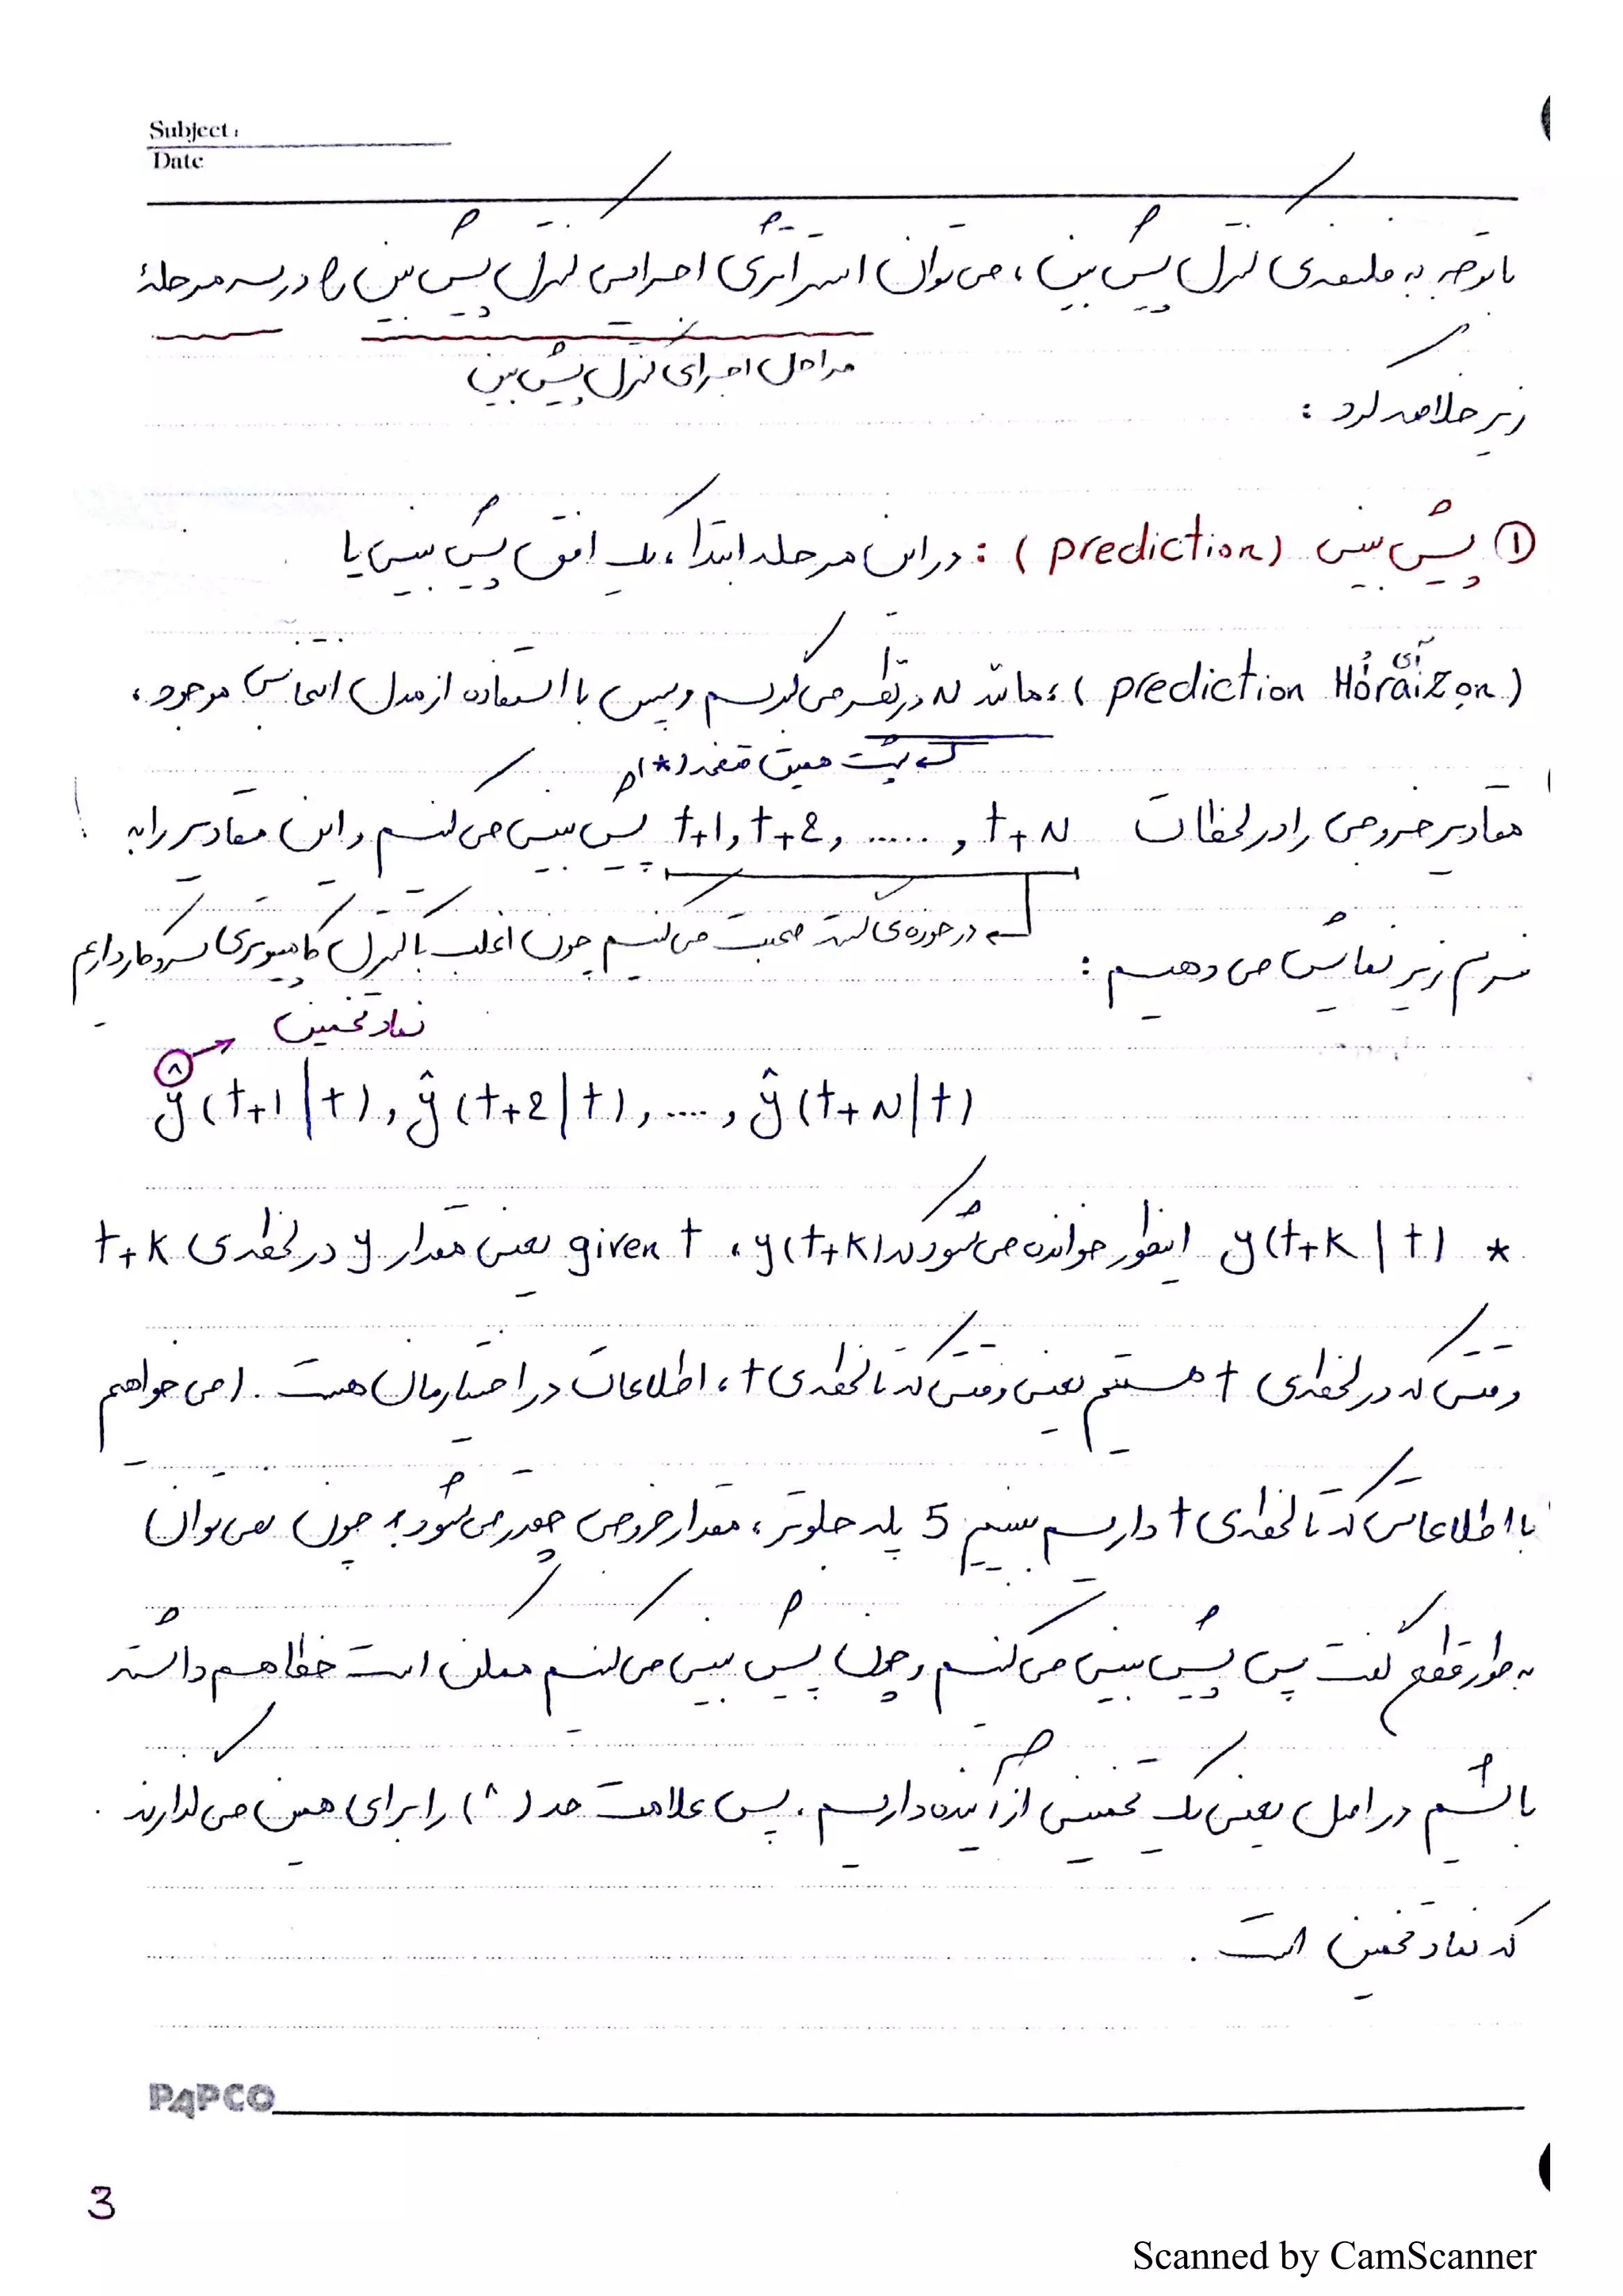 Subject:
Date
با توجه به فلسفه‌ی کنترل پیش بین، می‌توان استراتژی اجرایی کنترل پیش بین را در سه مرحلهٔ
مراحل اجرای کنترل پیش بین
زیر خلاصه کرد :
① پیش بینی (prediction) : در این مرحله ابتدا، یک افق پیش بینی یا
(prediction Horaizon) ، مانند N در نظر می‌گیریم و سپس با استفاده از مدل انتخابی موجود،
پشت همین صفحه (*)
مقادیر خروجی را در لحظات t+1, t+2, ......, t+N پیش بینی می‌کنیم و این مقادیر را به
در حوزه‌ی گسسته صحبت می‌کنیم چون اغلب با کنترل کامپیوتری سروکار داریم
فرم زیر نمایش می‌دهیم :
نماد تخمین
ŷ(t+1|t), ŷ(t+2|t), ...., ŷ(t+N|t)
* y(t+k|t) اینطور خوانده می‌شود که y(t+k) ، given t یعنی مقدار y در لحظه‌ی t+k
وقتی که در لحظه‌ی t هستیم یعنی وقتی که تا لحظه‌ی t، اطلاعات در اختیارمان هست. (می‌خواهیم
با اطلاعاتی که تا لحظه‌ی t داریم ببینیم 5 پله جلوتر، مقدار خروجی چقدر می‌شود؟ چون نمی‌توان
به طور قطع گفت پس پیش بینی می‌کنیم و چون پیش بینی می‌کنیم ممکن است خطا هم داشته
باشیم در اصل یعنی یک تخمینی از آینده داریم. پس علامت هد (^) را برای همین می‌گذارند
که نماد تخمین است .
PAPCO
3
Scanned by CamScanner